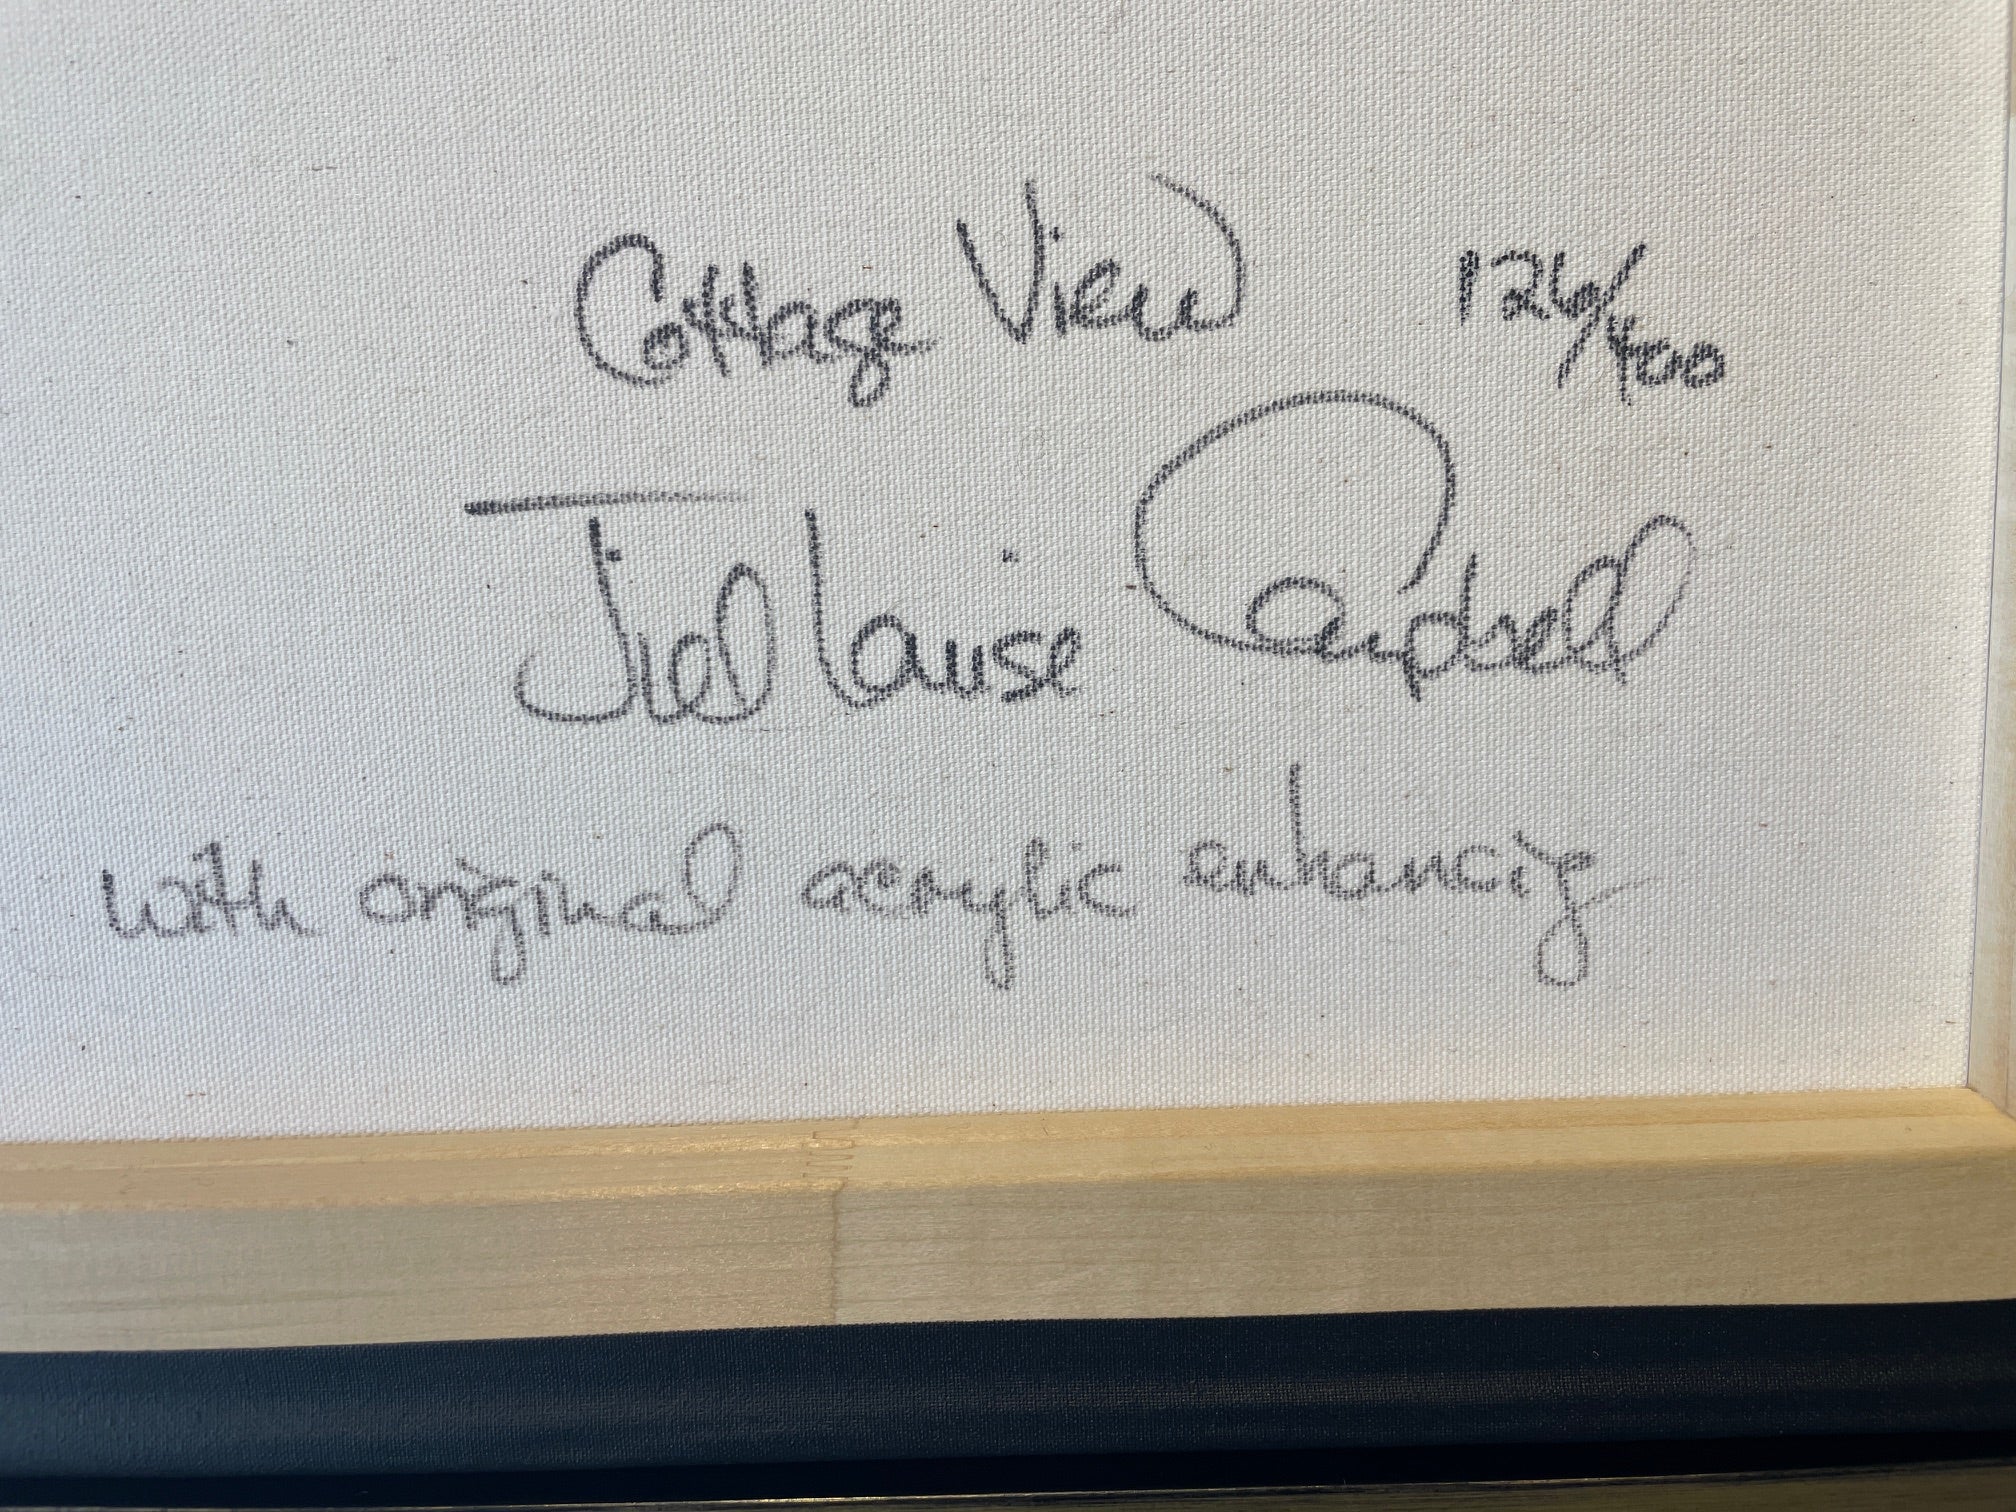 Cottage View 126/400
Jill Louise Campbell
with original acrylic enhancing